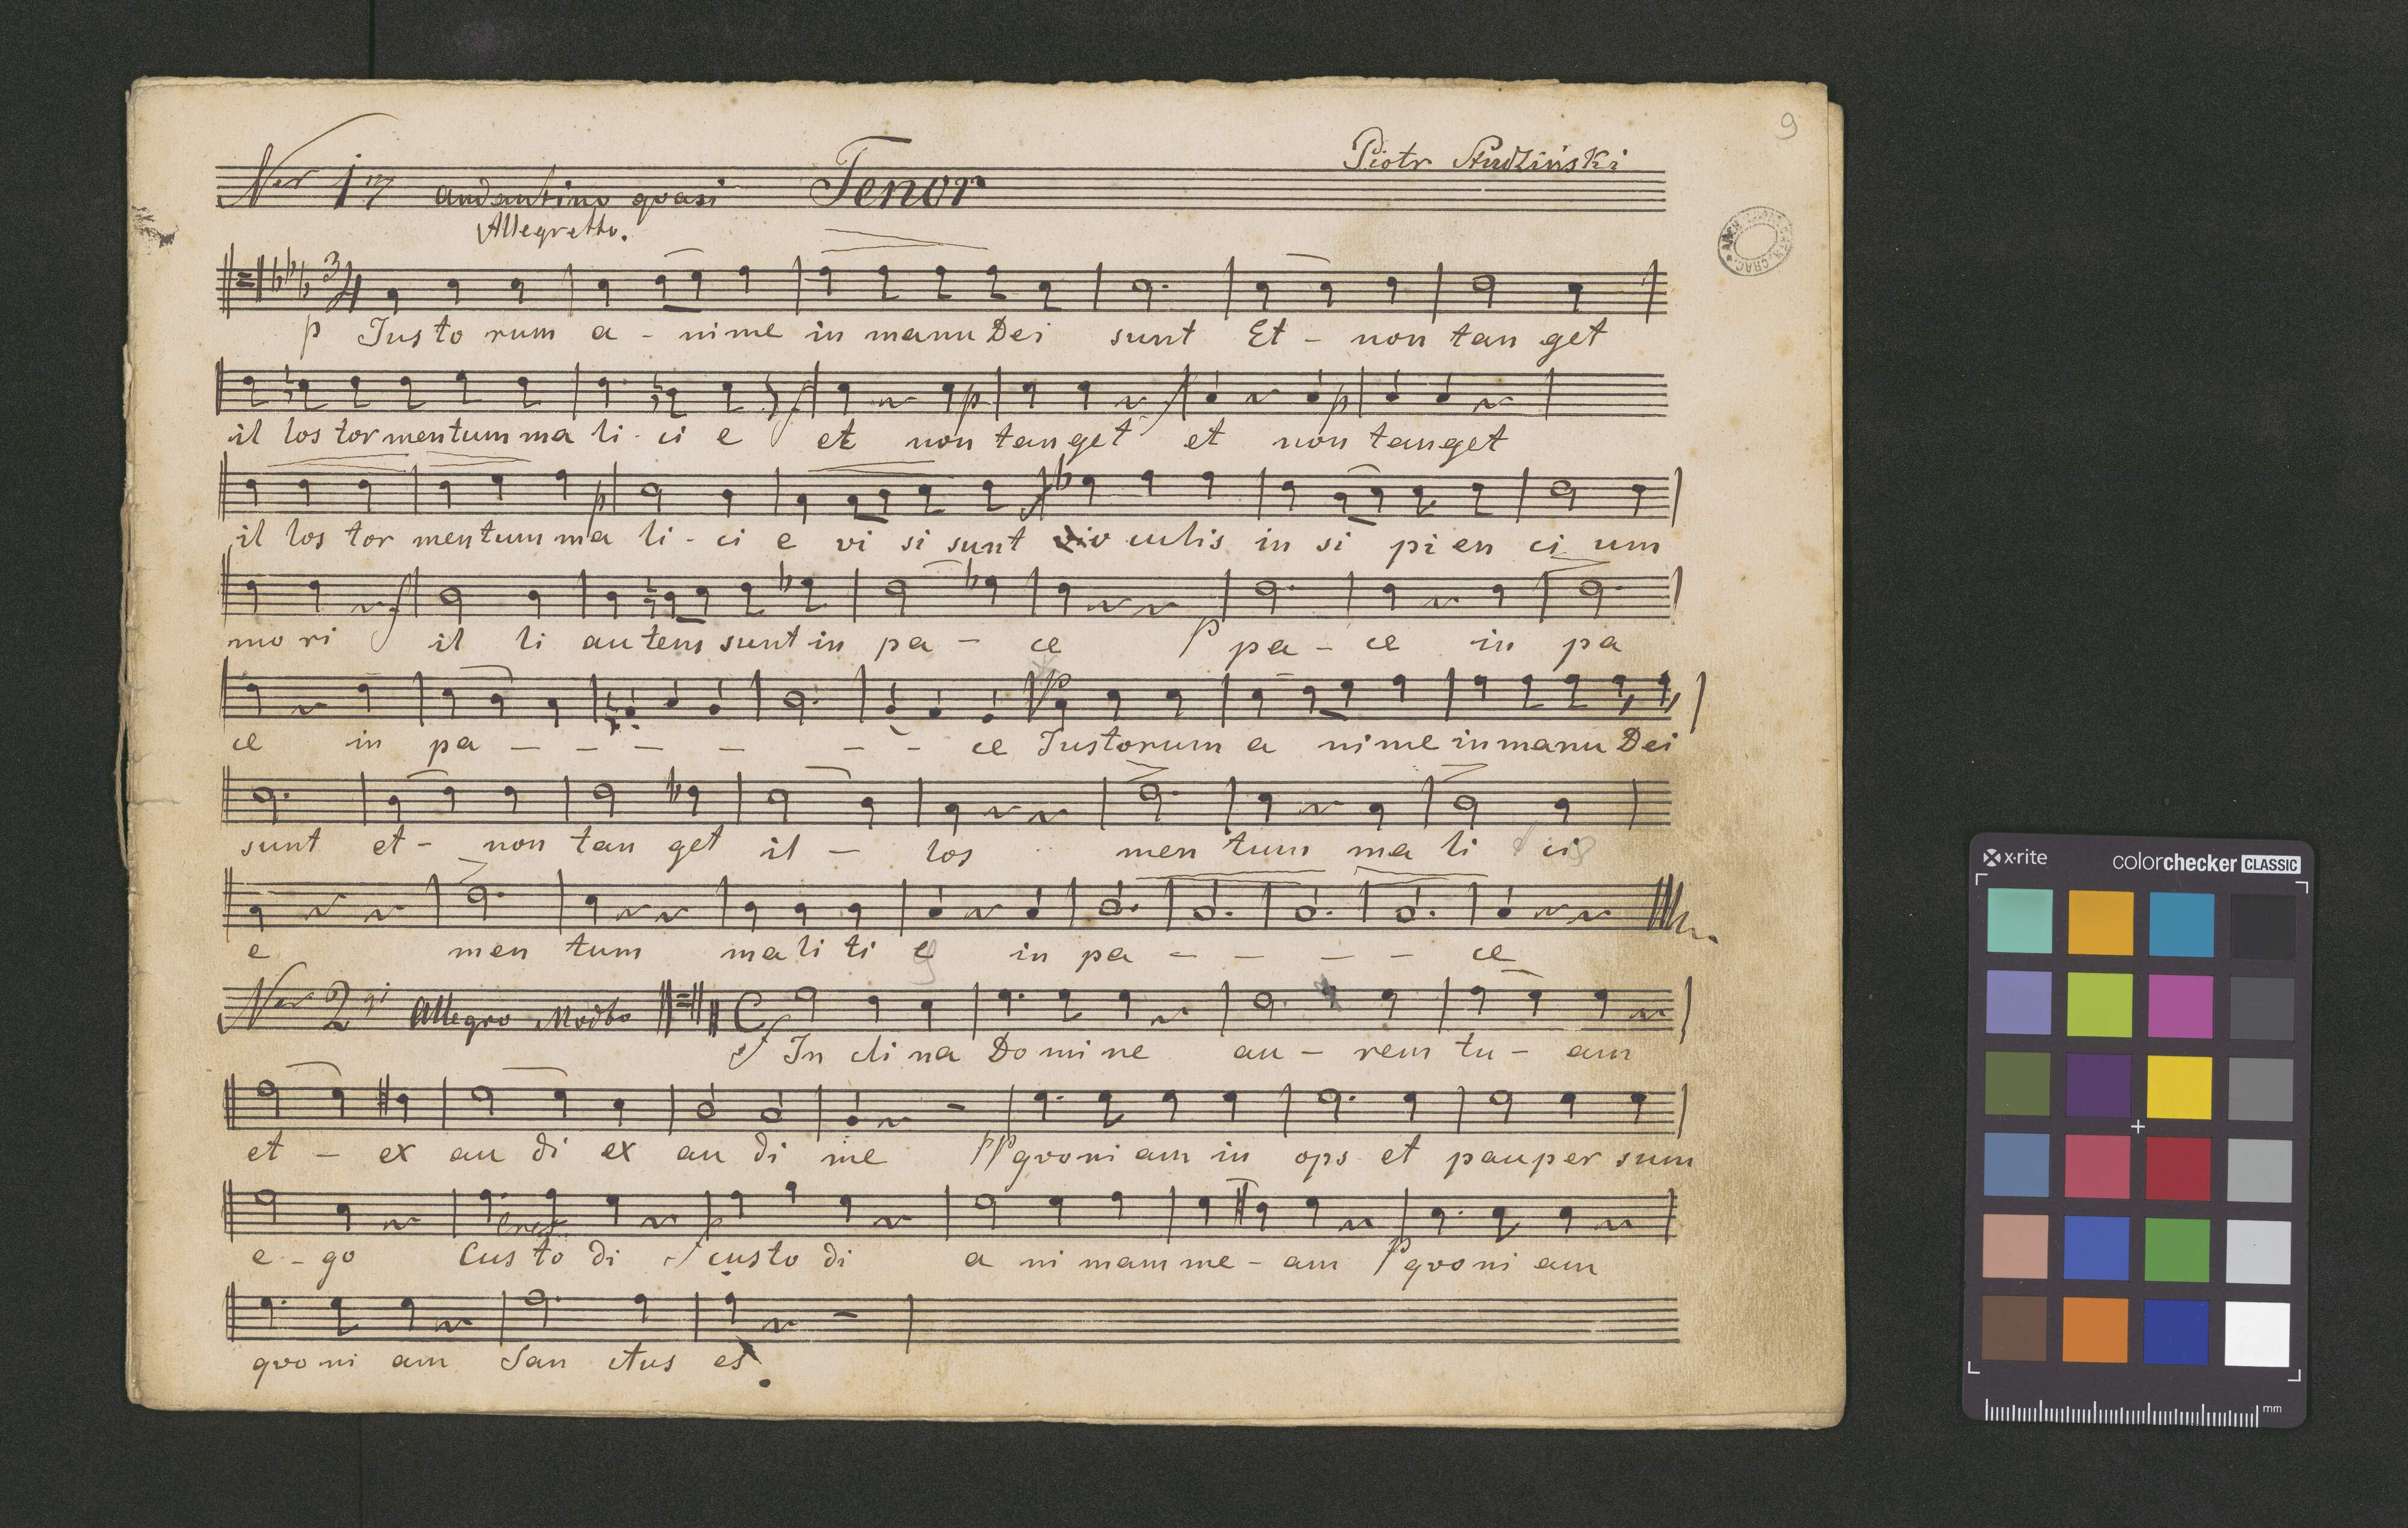 9
Piotr Studziński
Ner 1 andantino qvasi Tenor
Allegretto.
p Justo rum a - nime in manu Dei sunt Et - non tan get
il los tor mentum ma li - ci e f et non tanget et non tanget
il los tor mentum ma li - ci e vi si sunt in si pi en ci um
mo ri il li autem sunt in pa - ce p pa - ce in pa
ce in pa - - - - - - ce Justorum a nime in manu Dei
sunt et - non tan get il - los men tum ma li ci
e men tum ma li ti e in pa - - - - ce
Ner 2 Allegro Modto C
f In cli na Do mi ne au - rem tu - am
et - ex au di ex au di me pp qvoni am in ops et pauper sum
e - go Cus to di f custo di a ni mam me - am p qvo ni am
qvo ni am San ctus es
x·rite colorchecker CLASSIC
mm